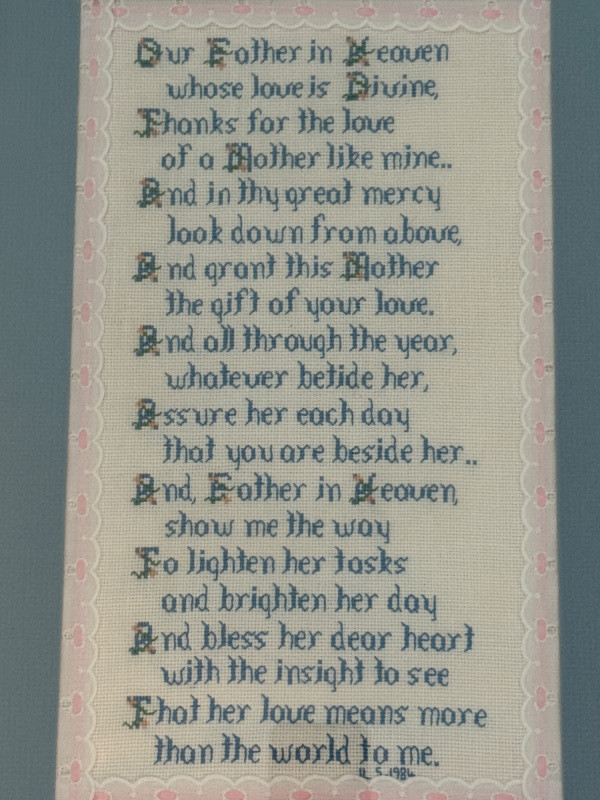 Our Father in Heaven
whose love is Divine,
Thanks for the love
of a Mother like mine..
And in thy great mercy
look down from above,
And grant this Mother
the gift of your love.
And all through the year,
whatever betide her,
Assure her each day
that you are beside her..
And, Father in Heaven,
show me the way
To lighten her tasks
and brighten her day
And bless her dear heart
with the insight to see
That her love means more
than the world to me.
S. 1986